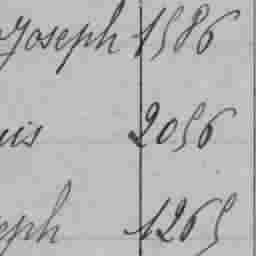 Joseph 1586
uis 2056
eph 1265